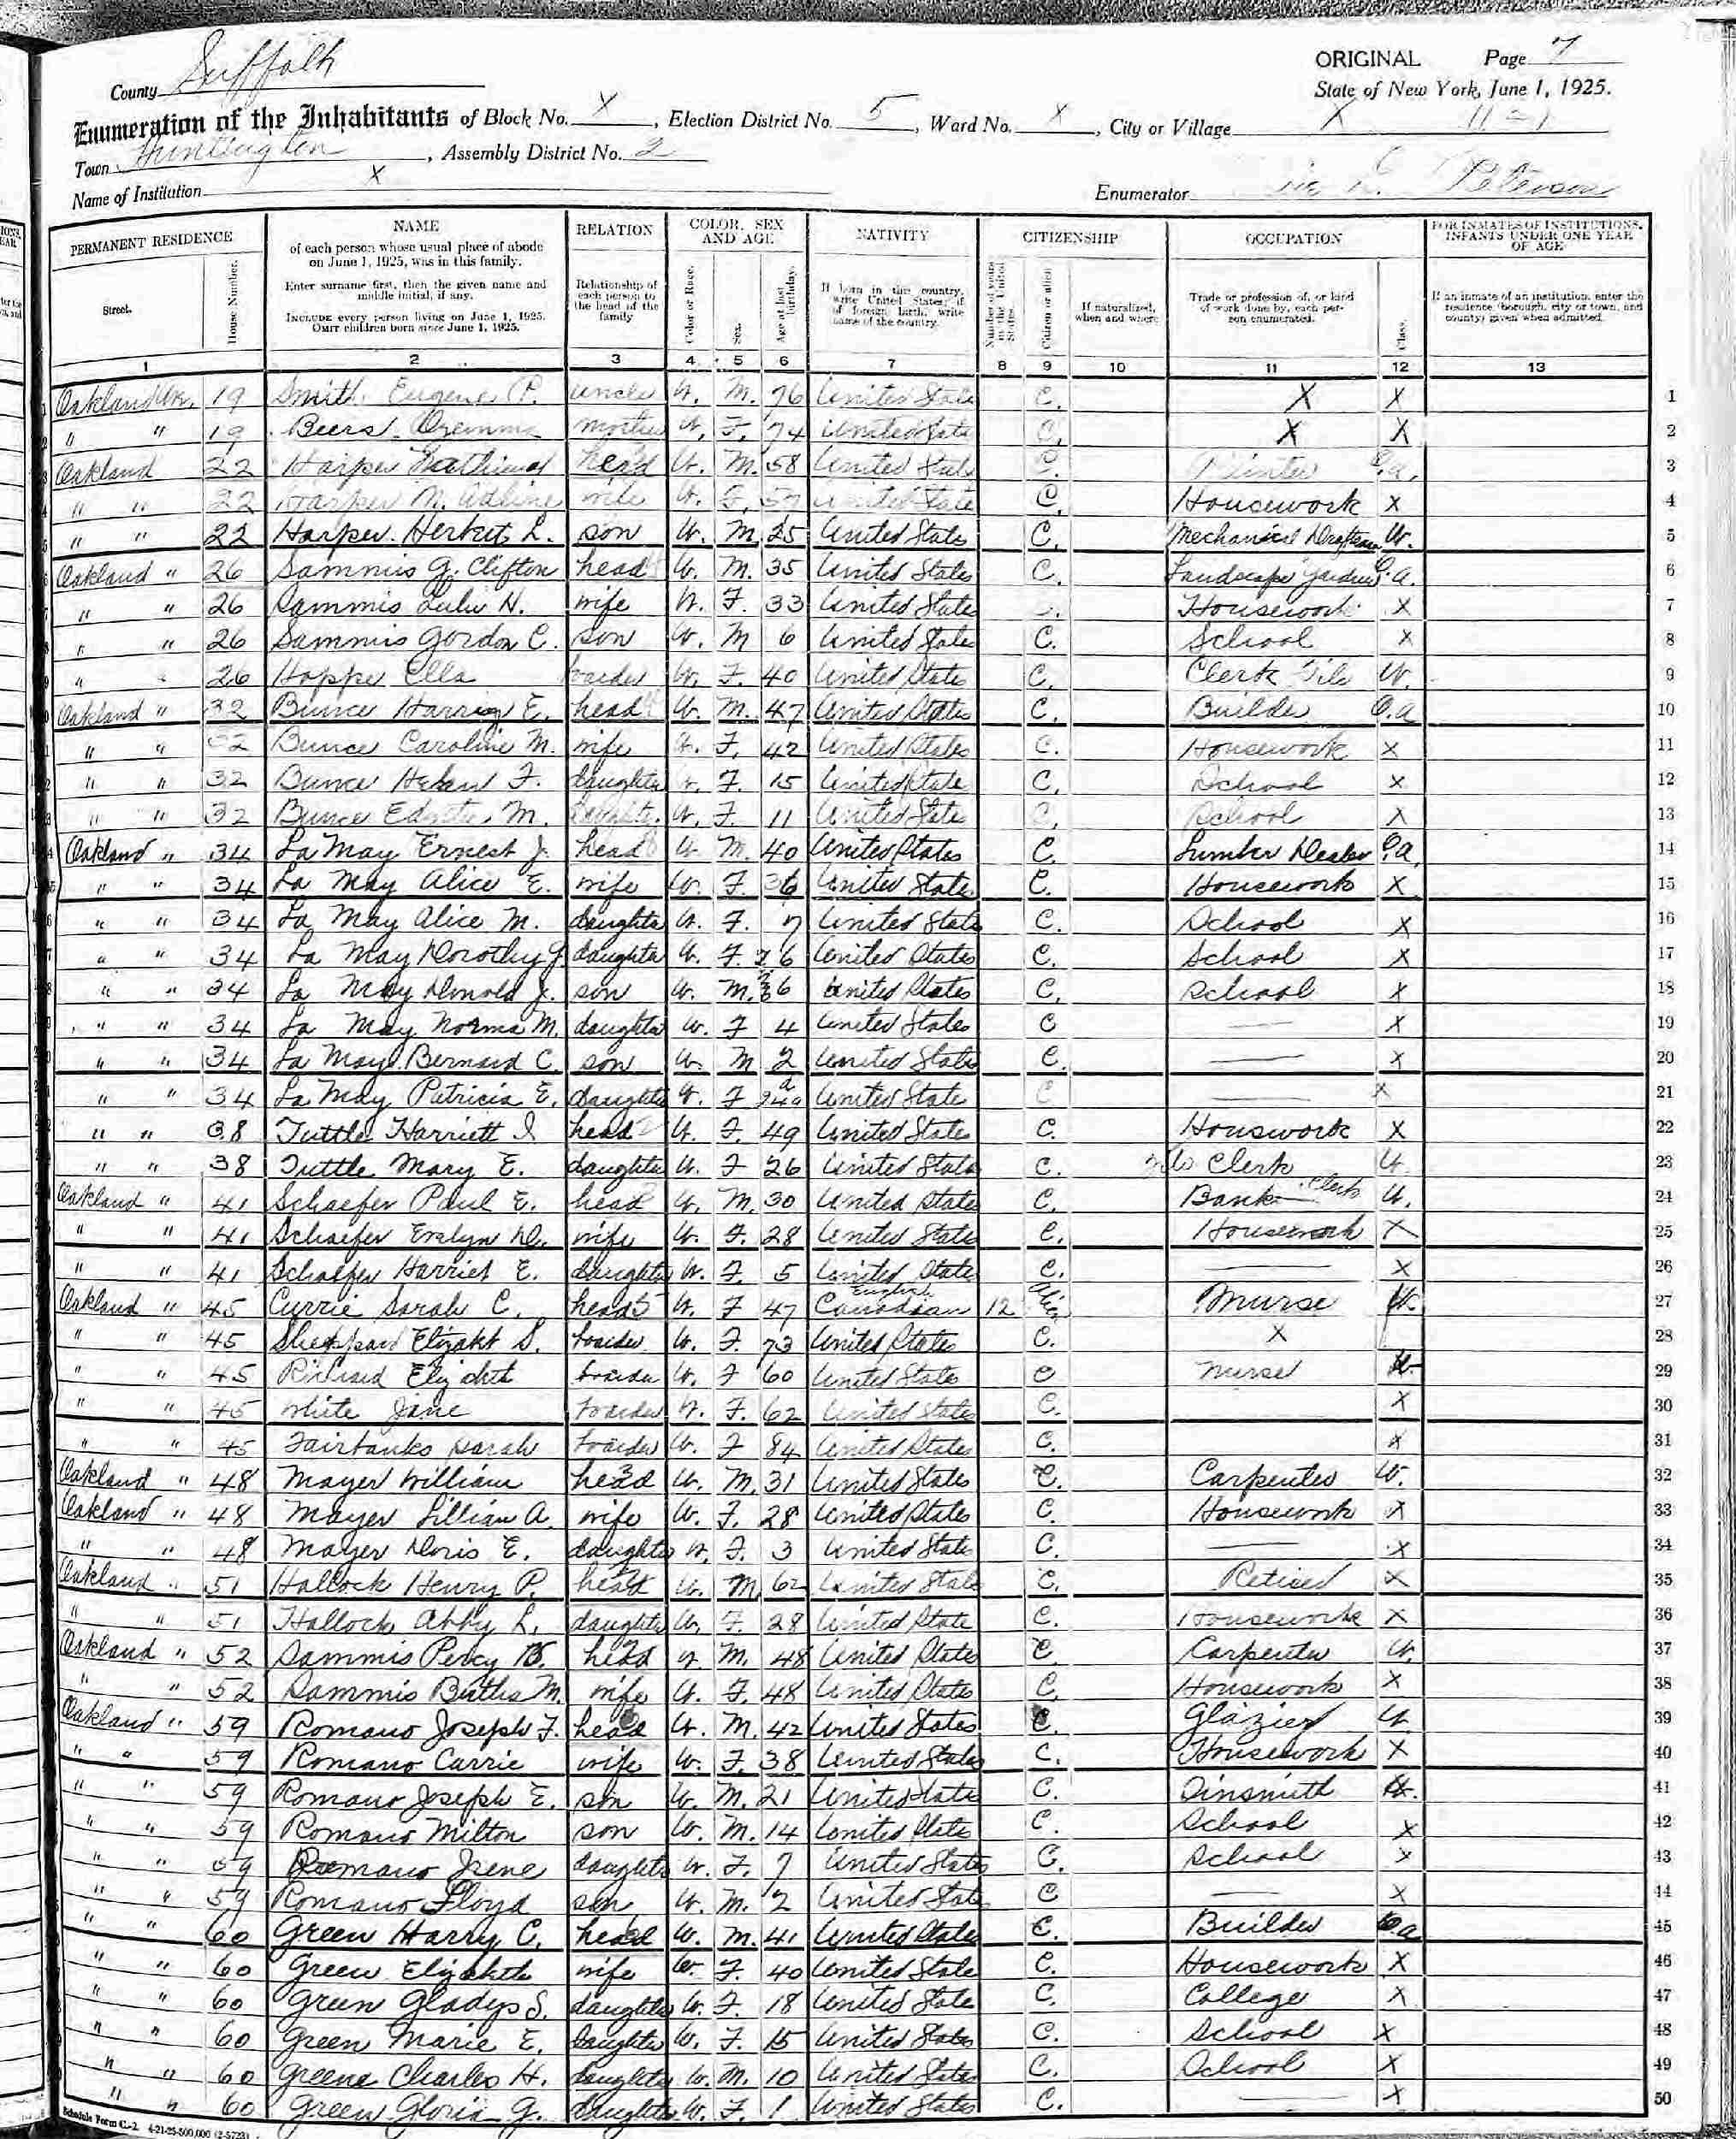 ORIGINAL Page 7
County Suffolk State of New York, June 1, 1925.
Enumeration of the Inhabitants of Block No. X, Election District No. 5, Ward No. X, City or Village X
Town Huntington, Assembly District No. 2
Name of Institution X Enumerator Peterson
PERMANENT RESIDENCE NAME RELATION COLOR, SEX AND AGE NATIVITY CITIZENSHIP OCCUPATION FOR INMATES OF INSTITUTIONS, INFANTS UNDER ONE YEAR OF AGE
Street. House Number. of each person whose usual place of abode on June 1, 1925, was in this family. Enter surname first, then the given name and middle initial, if any. INCLUDE every person living on June 1, 1925. OMIT children born since June 1, 1925. Relationship of each person to the head of the family Color or Race. Sex. Age at last birthday. If born in this country, write United States; if of foreign birth, write name of the country. Number of years in the United States. Citizen or alien If naturalized, when and where Trade or profession of, or kind of work done by, each person enumerated. Class. If an inmate of an institution, enter the residence (borough, city or town, and county) given when admitted.
1 2 3 4 5 6 7 8 9 10 11 12 13
Oakland 19 Smith Eugene P. uncle W. M. 76 United State C. X X 1
" " 19 Beers mother W. F. 74 United State C. X X 2
Oakland 22 Harper head W. M. 58 United State C. 3
" " 22 Harper M. Adline wife W. F. 57 United State C. Housework X 4
" " 22 Harper Herbert L. son W. M. 25 United States C. Mechanical W. 5
Oakland " 26 Sammis G. Clifton head W. M. 35 United States C. Landscape O.a. 6
" " 26 Sammis Lulu H. wife W. F. 33 United States Housework X 7
" " 26 Sammis Gordon C. son W. M 6 United States C. School X 8
" " 26 Hopper Ella boarder W. F. 40 United State C. Clerk W. 9
Oakland " 32 Bunce E. head W. M. 47 United States C. Builder O.a 10
" " 32 Bunce Caroline M. wife W. F. 42 United States C. Housework X 11
" " 32 Bunce F. daughter W. F. 15 United State C. School X 12
" " 32 Bunce M. daughter W. F. 11 United States C. School X 13
Oakland " 34 La May Ernest J. head W. M. 40 United States C. Lumber Dealer O.a. 14
" " 34 La May Alice E. wife W. F. 36 United State C. Housework X 15
" " 34 La May Alice M. daughter W. F. 7 United State C. School X 16
" " 34 La May Dorothy J. daughter W. F. 6 United States C. School X 17
" " 34 La May Donald J. son W. M. 6 United States C. School X 18
" " 34 La May Norma M. daughter W. F 4 United States C — X 19
" " 34 La May Bernard C. son W. M 2 United States C. — X 20
" " 34 La May Patricia E. daughter W. F United State C — X 21
" " 38 Tuttle Harriett I head W. F. 49 United States C. Housework X 22
" " 38 Tuttle Mary E. daughter W. F 26 United State C. Clerk W. 23
Oakland " 41 Schaefer Paul E. head W. M. 30 United States C. Bank Clerk W. 24
" " 41 Schaefer Evelyn D. wife W. F. 28 United State C. Housework X 25
" " 41 Schaefer Harriet E. daughter W. F. 5 United State C. — X 26
Oakland " 45 Currie Sarah C. head W. F 47 Canadian English 12 Nurse W. 27
" " 45 Sheppard S. boarder W. F. 73 United States C. X 28
" " 45 boarder W. F 60 United States C Nurse W. 29
" " 45 White Jane boarder W. F. 62 United States C. X 30
" " 45 Fairbanks Sarah boarder W. F 84 United States C. X 31
Oakland " 48 Mayer William head W. M. 31 United States C. Carpenter W. 32
Oakland " 48 Mayer Lillian A. wife W. F. 28 United States C. Housework X 33
" " 48 Mayer Doris E. daughter W. F. 3 United States C. — X 34
Oakland " 51 Hallock Henry P. head W. M. 62 United State C. Retired X 35
" " 51 Hallock Abby L. daughter W. F. 28 United State C. Housework X 36
Oakland " 52 Sammis Percy head W. M. 48 United States C Carpenter W. 37
" " 52 Sammis Bertha M. wife W. F. 48 United States C. Housework X 38
Oakland " 59 Romano Joseph F. head W. M. 42 United States C. Glazier W 39
" " 59 Romano Carrie wife W. F. 38 United States C. Housework X 40
" " 59 Romano Joseph E. son W. M. 21 United State C. Tinsmith W. 41
" " 59 Romano Milton son W. M. 14 United State C. School X 42
" " 59 Romano Irene daughter W. F. 7 United States C. School X 43
" " 59 Romano Floyd son W. M. 2 United State C — X 44
" " 60 Green Harry C. head W. M. 41 United States C. Builder O.a 45
" " 60 Green Elizabeth wife W. F. 40 United State C. Housework X 46
" " 60 Green Gladys S. daughter W. F. 18 United State C. College X 47
" " 60 Green Marie E. daughter W. F. 15 United States C. School X 48
" " 60 Greene Charles H. daughter W. M. 10 United States C. School X 49
" " 60 Green Gloria G. daughter W. F. 1 United States C. — X 50
Schedule Form C.-2. 4-21-25-500,000 (2-5723)